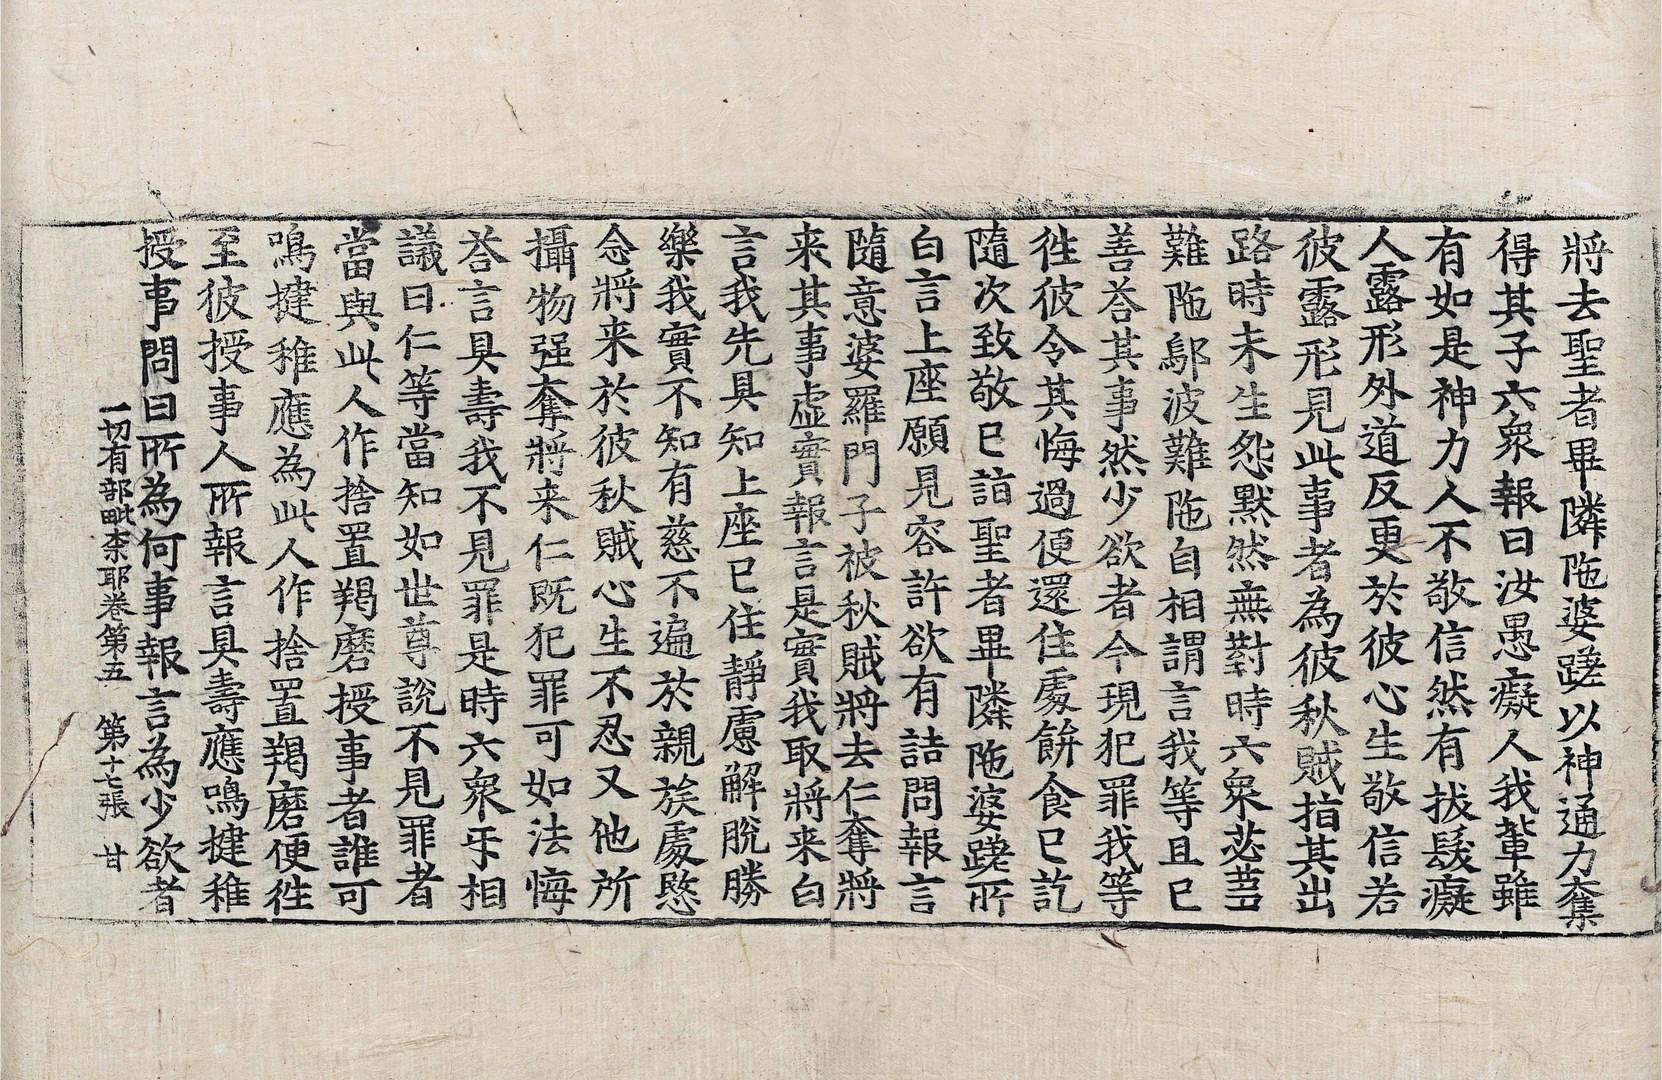 將去聖者畢隣陁婆蹉以神通力奪
得其子六衆報曰汝愚癡人我輩雖
有如是神力人不敬信然有拔髮癡
人露形外道反更於彼心生敬信若
彼露形見此事者為彼秋賊指其出
路時未生怨默然無對時六衆苾芻
難陁鄔波難陁自相謂言我等且已
善荅其事然少欲者今現犯罪我等
徃彼令其悔過便還住處餅食已訖
隨次致敬已詣聖者畢隣陁婆蹉所
白言上座願見容許欲有詰問報言
隨意婆羅門子被秋賊將去仁奪將
来其事虛實報言是實我取將来白
言我先具知上座已住靜慮解脫勝
樂我實不知有慈不遍於親族處愍
念將来於彼秋賊心生不忍又他所
攝物强奪將来仁既犯罪可如法悔
荅言具壽我不見罪是時六衆乎相
議曰仁等當知如世尊說不見罪者
當與此人作捨置羯磨授事者誰可
鳴揵稚應為此人作捨置羯磨便徃
至彼授事人所報言具壽應鳴揵稚
授事問曰所為何事報言為少欲者
一切有部毗柰耶卷第五 第十七張 甘